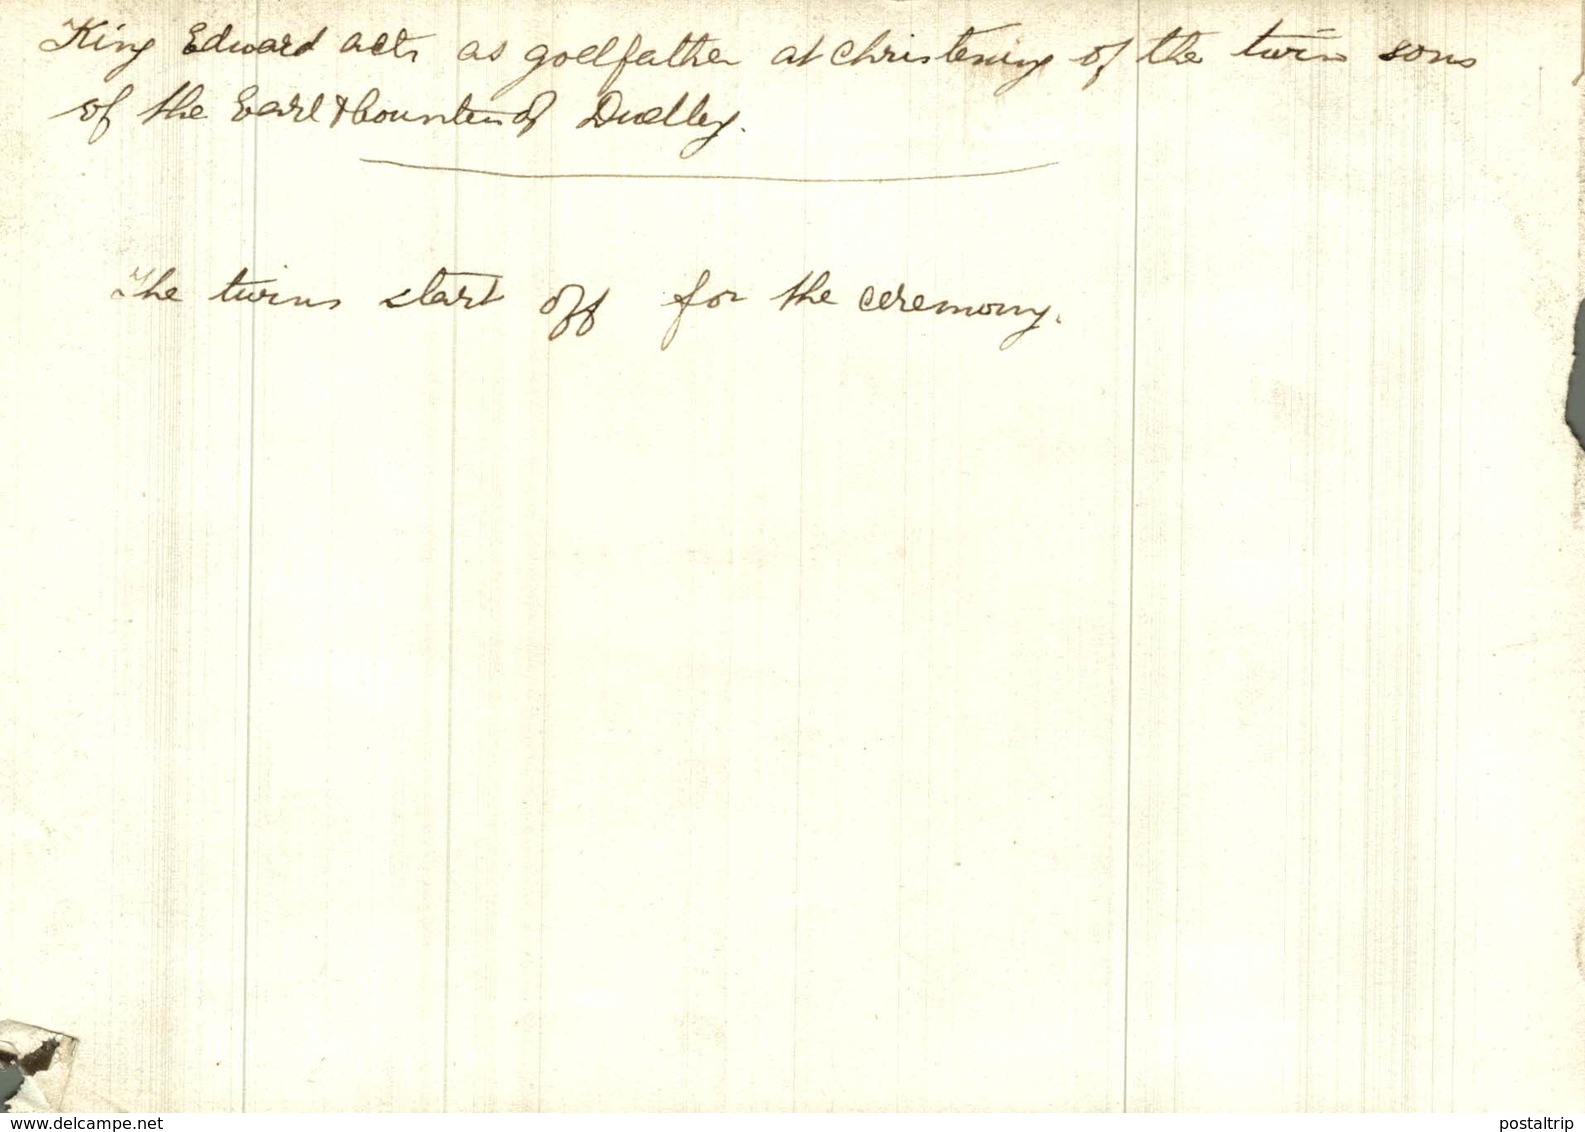 King Edward acts as godfather at christening of the twin sons
of the Earl & Countess of Dudley.
The twins start off for the ceremony.
www.delcampe.net
postaltrip